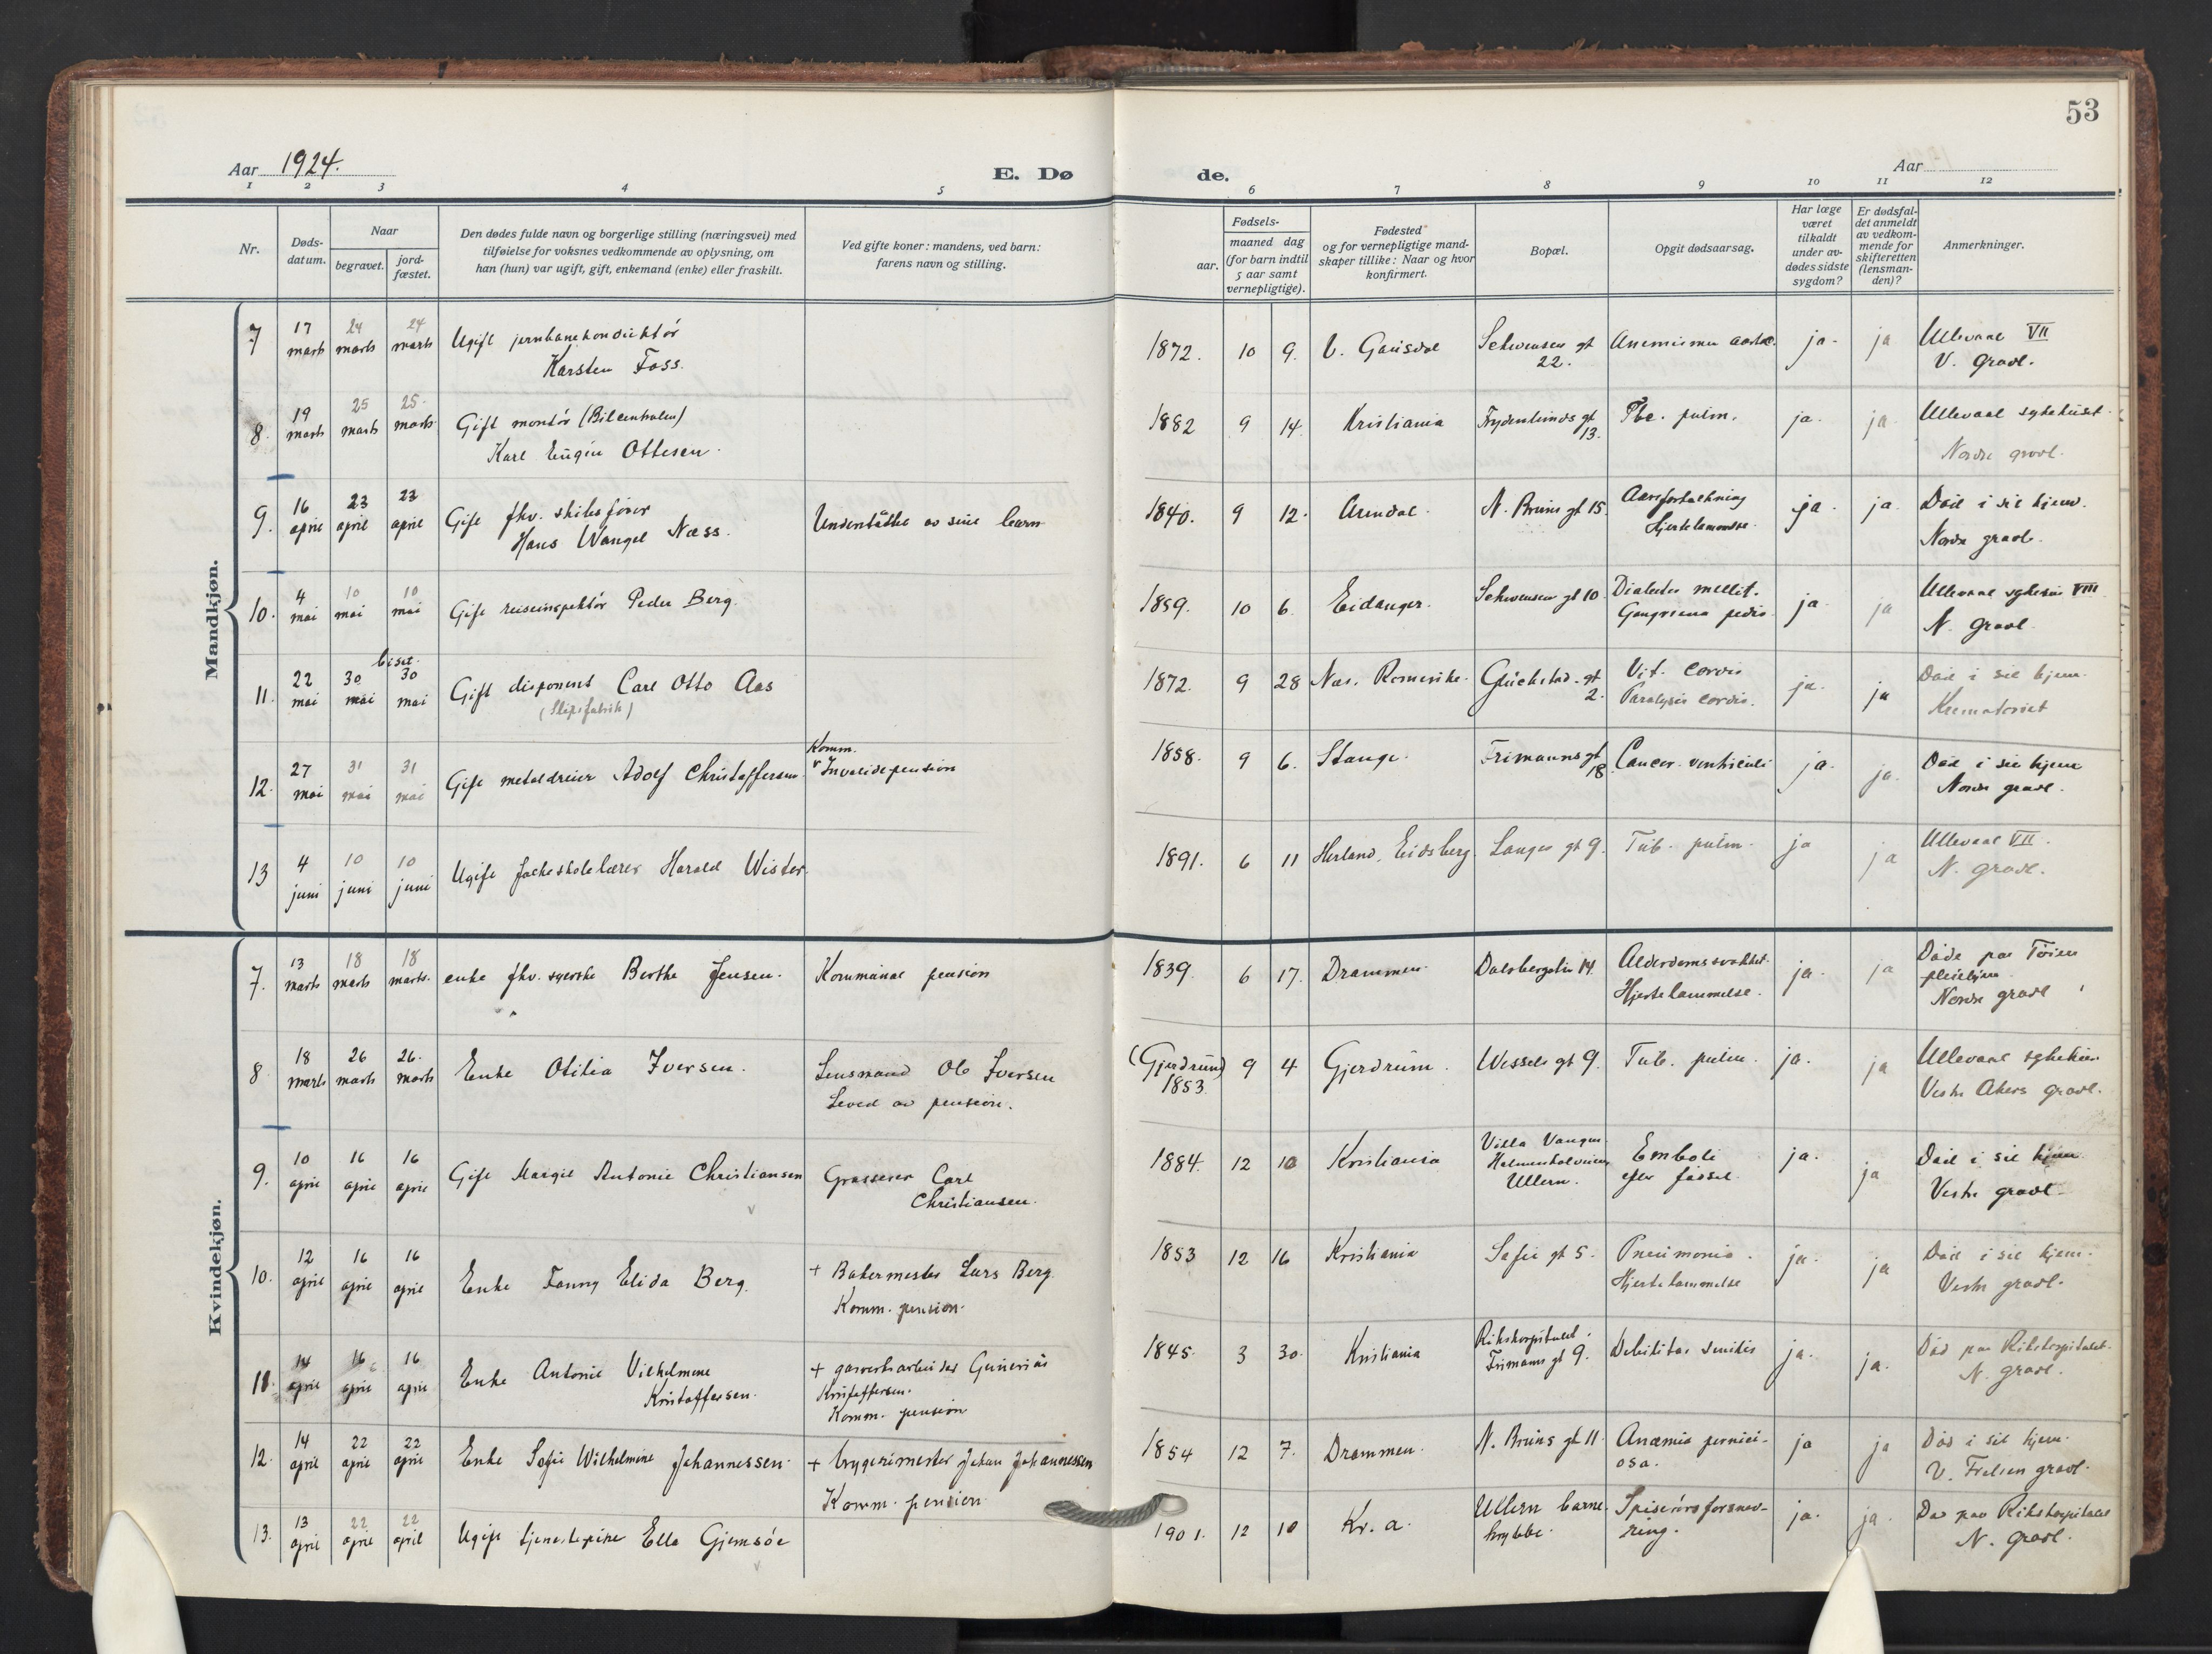 53
Aar 1924.
E. Dø
de.
Aar
1 2 3 4 5
6 7 8 9 10 11 12
Nr.
Døds-
datum.
Naar
begravet.
jord-
fæstet.
Den dødes fulde navn og borgerlige stilling (næringsvei) med
tilføielse for voksnes vedkommende av oplysning, om
han (hun) var ugift, gift, enkemand (enke) eller fraskilt.
Ved gifte koner: mandens, ved barn:
farens navn og stilling.
Fødsels-
aar.
maaned dag
(for barn indtil
5 aar samt
vernepligtige).
Fødested
og for vernepligtige mand-
skaper tillike: Naar og hvor
konfirmert.
Bopæl.
Opgit dødsaarsag.
Har læge
været
tilkaldt
under av-
dødes sidste
sygdom?
Er dødsfal-
det anmeldt
av vedkom-
mende for
skifteretten
(lensman-
den)?
Anmerkninger.
Mandkjøn.
7 17 marts 24 marts 24 marts Ugift jernbanekonduktør
Karsten Foss.
1872. 10 9. Schwensens gt 22. ja. ja Ullevaal VII
V. Gravl.
8. 19 marts 25 marts 25. marts Gift montør (Bilcentralen)
Karl Eugin Ottesen.
1882 9 14. Kristiania Frydenlunds gt 13. Tbc. pulm. ja. ja Ullevaal sykehuset.
Nordre gravl.
9. 16 april 23 april 23 april Gift fhv. skibsfører
Hans Wangel Næss.
Understøttet av sine barn
1840. 9 12. Arendal. N. Bruns gt 15. Aareforkalkning
Hjertelammelse. ja. ja. Død i sit hjem.
Nordre gravl.
10. 4 mai 10 mai 10 mai Gift reiseinspektør Peder Berg.
1859. 10 6. Eidanger. Schwensens gt 10. Diabetes mellit.
Gangræna pedis. ja. ja Ullevaal sykehus VIII
N. Gravl.
biset.
11. 22 mai 30 mai 30 mai Gift disponent Carl Otto Aas
(Slipsfabrik)
1872. 9 28 Nes. Romerike. Glückstad. gt 2. Vit. cordis
Paralysis cordis. ja. ja Død i sit hjem.
Krematoriet
12. 27 mai 31 mai 31 mai Gift metaldreier Adolf Christoffersen.
Komm.
Invalidepension
1858. 9 6. Stange. Frimanns gt 18. Cancer ventriculi ja. ja. Død i sit hjem
Nordre gravl.
13 4 juni 10 juni 10 juni Ugift folkeskolelærer Harald Wister.
1891. 6 11 Herland, Eidsberg. Langes gt 9. Tub. pulm. ja ja Ullevaal VII.
N. gravl.
Kvindekjøn.
7. 13 marts 18 marts 18 marts. enke fhv. syerske Berthe Jensen. Kommunal pension
1839. 6 17. Drammen. Dalsbergstien 14. Alderdomssvakhet.
Hjertelammelse. ja. ja Døde paa Tøien
pleiehjem.
Nordre gravl
8 18 marts 26 marts 26. marts Enke Otilia Iversen. Lensmand Ole Iversen
Leved av pension.
(Gjerdrum)
1853. 9 4 Gjerdrum. Wessels gt 9. Tub. pulm. ja. ja Ullevaal sykehus
Vestre Akers gravl.
9. 10 april 16 april 16 april Gift Margit Antonie Christiansen Grosserer Carl
Christiansen.
1884. 12 10 Kristiania Villa Vangen
Holmenkolveien,
Ullern. Emboli
efter fødsel. ja. ja Død i sit hjem
Vestre gravl.
10. 12 april 16 april 16 april Enke Fanny Elida Berg. + Bakermester Lars Berg.
Komm. pension.
1853 12 16 Kristiania Sofie gt 5. Pneumonia.
Hjertelammelse ja. ja Død i sit hjem.
Vestre gravl.
11. 14 april 16 april 16 april Enke Antonie Vilhelmine
Kristoffersen. + gasverksarbeider Gunerius
Kristoffersen.
Komm. pension
1845. 3 30. Kristiania Rikshospitalet.
Frimanns gt 9. Debilitas senilis ja. ja. Død paa Rikshospitalet.
N. gravl.
12. 14 april 22 april 22 april Enke Sofie Wilhelmine Johannessen. + bryggerimester Johan Johannessen
Komm. pension.
1854 12 7. Drammen. N. Bruns gt 11. Anæmia pernici-
osa. ja ja Død i sit hjem.
V. Frelsers gravl.
13. 13 april 22 april 22 april Ugift tjenestepike Ella Gjemsøe
1901. 12 10 Kr. a. Ullern barne-
krybbe. Spiserørsforsnev-
ring. ja. ja. Død paa Rikshospitalet
N. gravl.